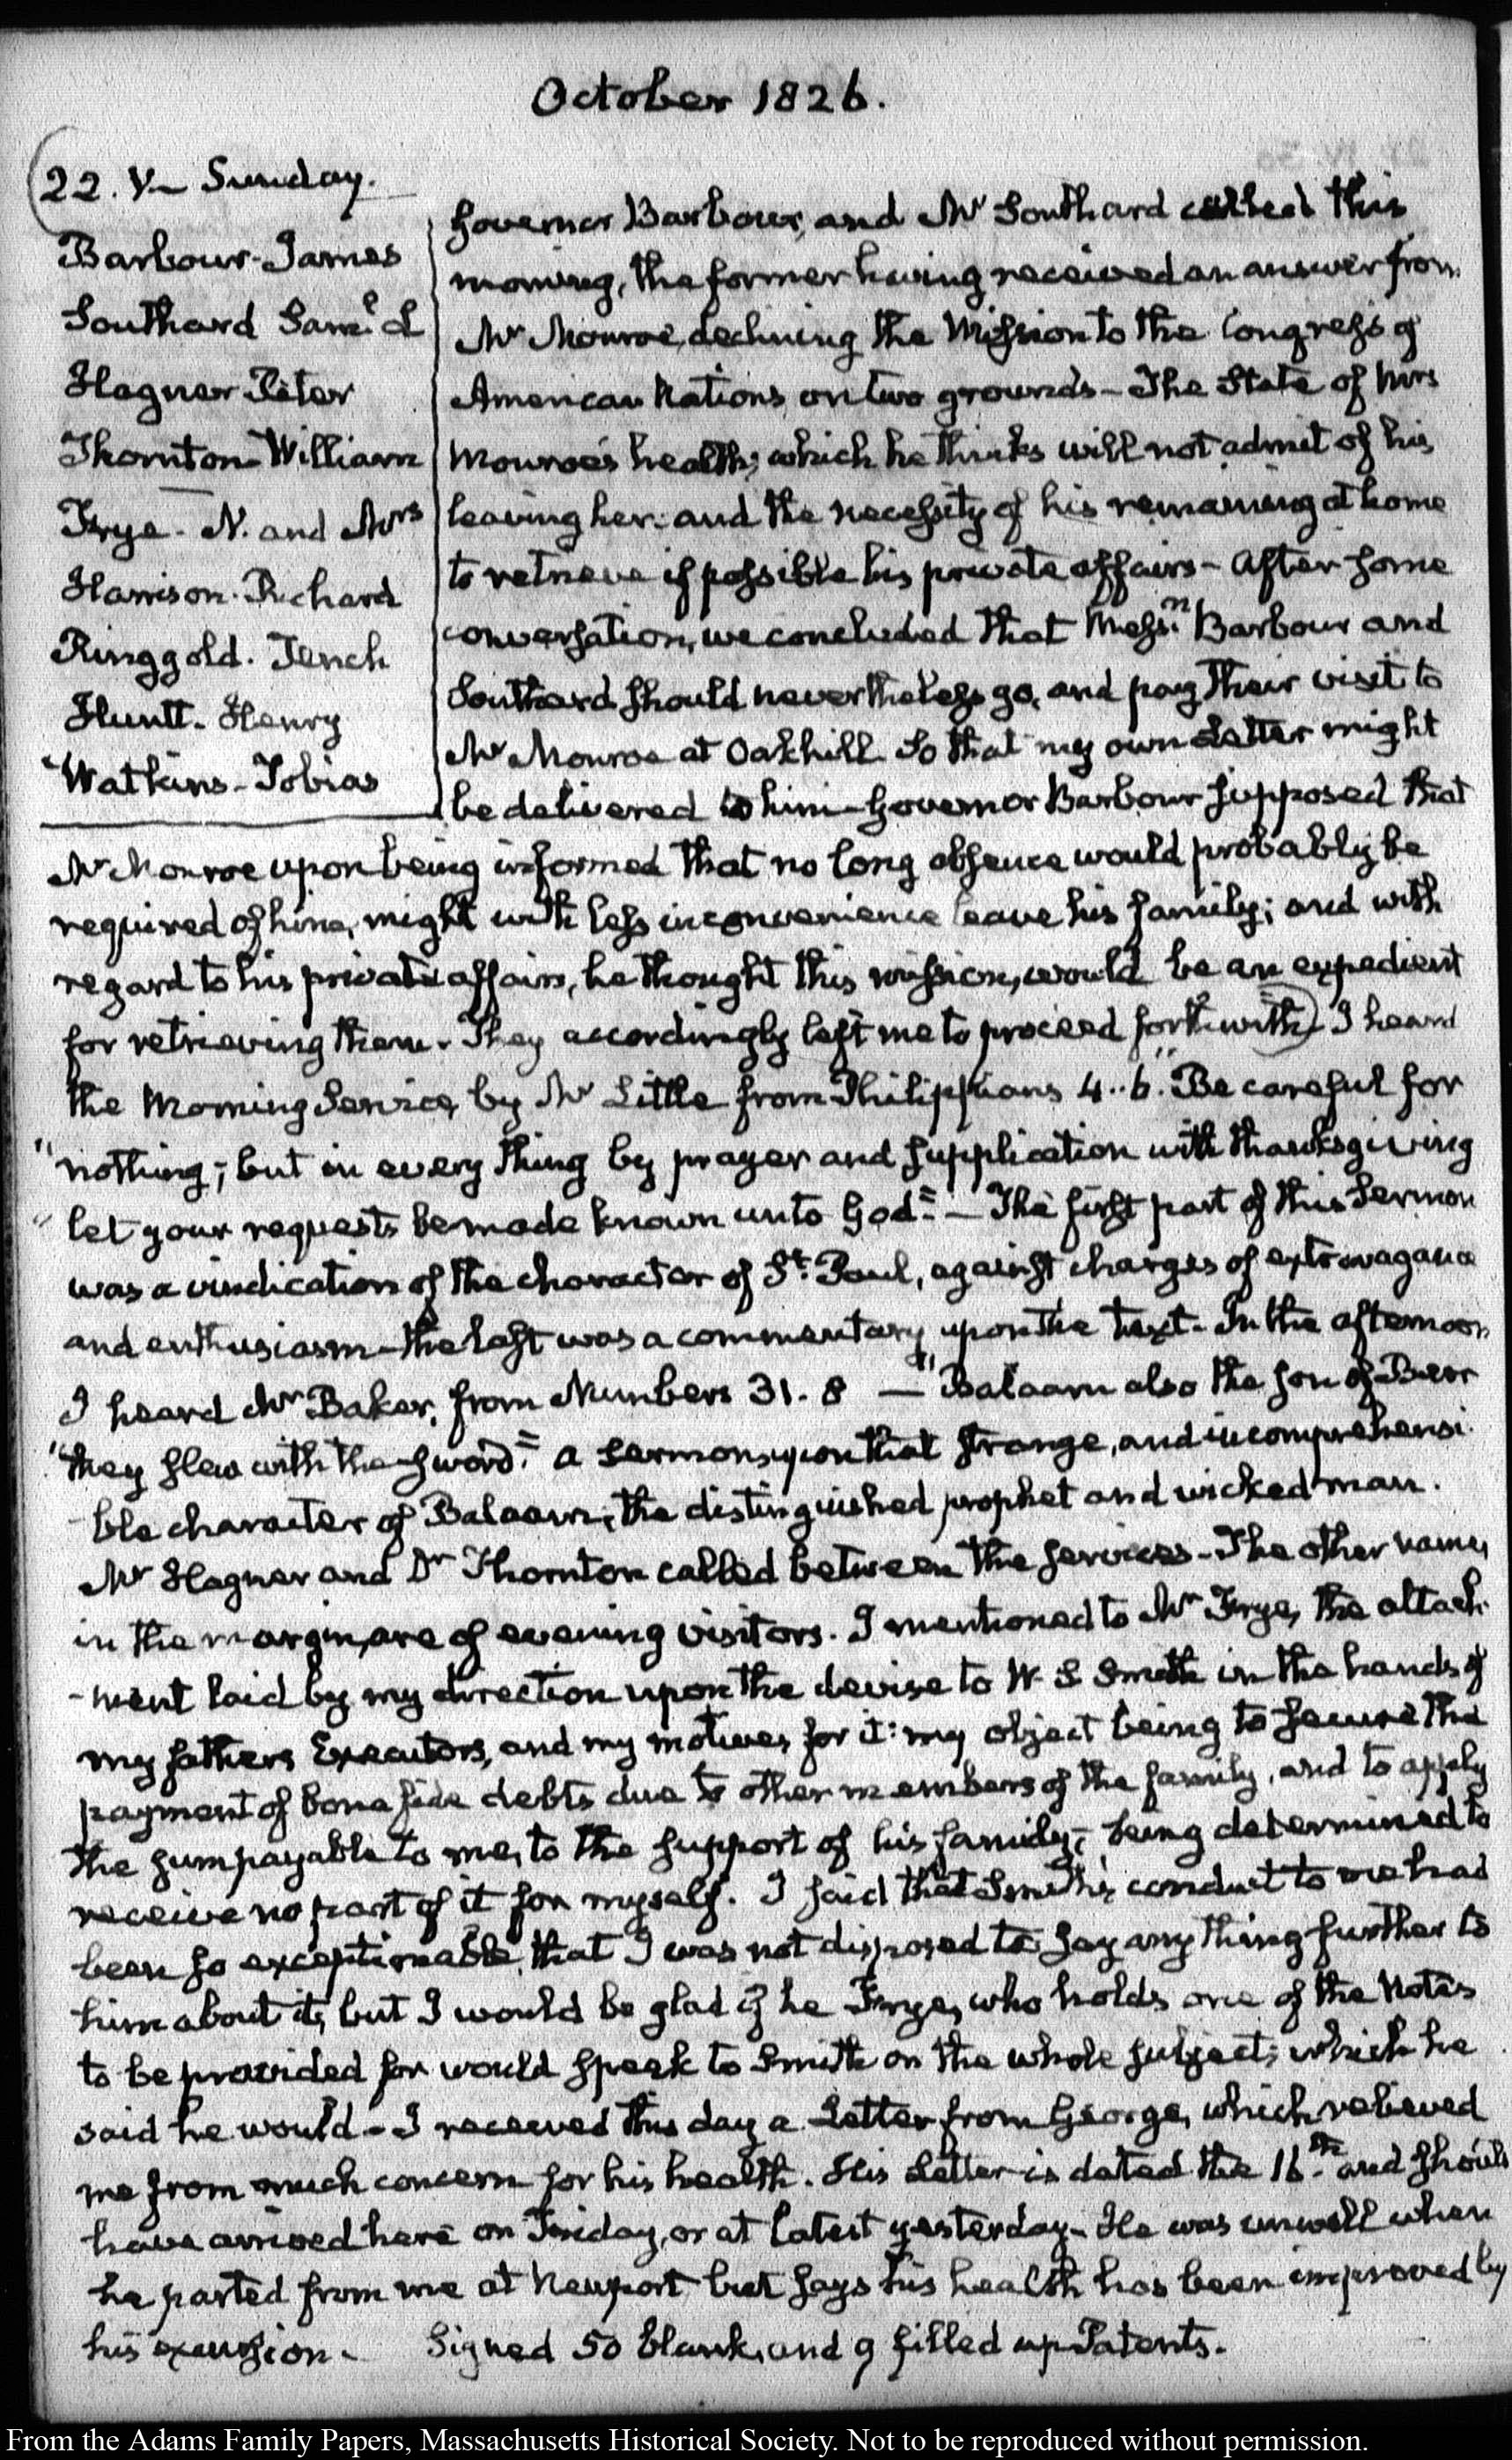 October 1826.
22. V— Sunday.
Barbour-James
Southard Saml. L
Hagner Peter
Thornton-William
Frye-N. and Mrs
Harrison-Richard
Ringgold. Tench
Huntt-Henry
Watkins-Tobias
Governor Barbour, and Mr Southard called this
morning, the former having received an answer from
Mr Monroe, declining the Mission to the Congress of
American Nations, on two grounds—The State of Mrs
Monroe's health; which he thinks will not admit of his
leaving her: and the necessity of his remaining at home
to retrieve if possible his private affairs—After some
conversation, we concluded that Messrs. Barbour and
Southard should nevertheless go, and pay their visit to
Mr Monroe at Oakhill. So that my own Letter might
be delivered to him—Governor Barbour supposed that
Mr Monroe upon being informed that no long absence would probably be
required of him, might with less inconvenience leave his family; and with
regard to his private affairs, he thought this mission, would be an expedient
for retrieving them. They accordingly left me to proceed forthwith) I heard
the Morning Service, by Mr Little from Philippians 4..6. "Be careful for
"nothing; but in every thing by prayer and supplication with thanksgiving
"let your requests be made known unto God."—The first part of this Sermon
was a vindication of the character of St. Paul, against charges of extravagance
and enthusiasm—the last was a commentary upon the text—In the afternoon
I heard Mr Baker, from Numbers 31. 8 — "Balaam also the son of Beor
"they slew with the sword." a sermon upon that strange, and incomprehensi-
-ble character of Balaam; the distinguished prophet and wicked man.
Mr Hagner and Dr Thornton called between the services—The other names
in the margin, are of evening visitors. I mentioned to Mr Frye, the attach-
-ment laid by my direction upon the devise to W. S. Smith in the hands of
my fathers Executors, and my motives for it: my object being to secure the
payment of bona fide debts due to other members of the family, and to apply
the sum payable to me, to the support of his family; being determined to
receive no part of it for myself. I said that Smith's conduct to me had
been so exceptionable, that I was not disposed to say any thing further to
him about it, but I would be glad if he Frye, who holds one of the Notes
to be provided for would speak to Smith on the whole subject; which he
said he would—I received this day a Letter from George, which relieved
me from much concern for his health. His Letter is dated the 16.th and should
have arrived here on Friday, or at latest yesterday—He was unwell when
he parted from me at Newport but says his health has been improved by
his excursion— Signed 50 blank, and 9 filled up Patents.
From the Adams Family Papers, Massachusetts Historical Society. Not to be reproduced without permission.